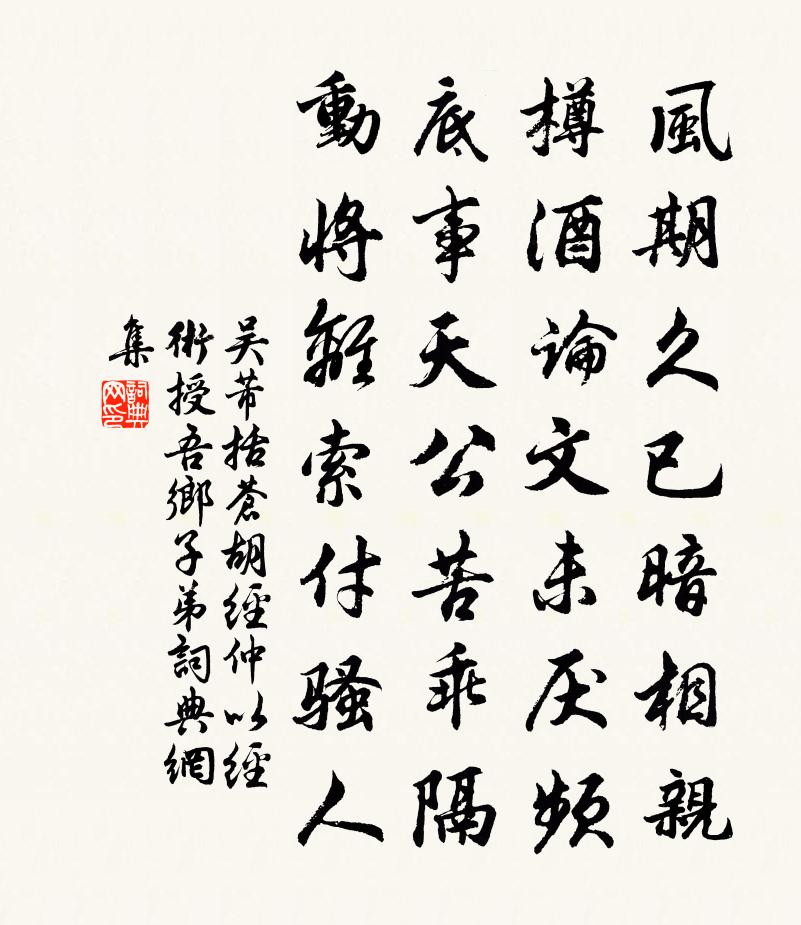 風期久已暗相親
樽酒論文未厌頻
底事天公苦乖隔
動將離索付騷人
吴芾括蒼胡經仲以經
術授吾鄉子弟詞典網
集
詞典
网印